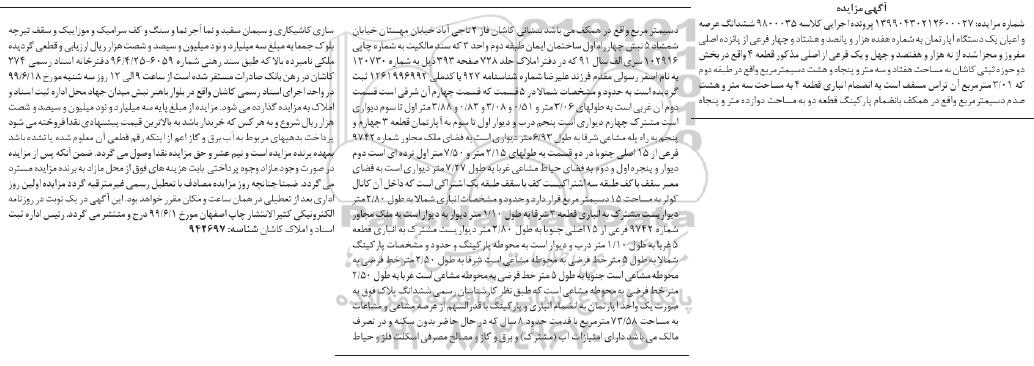 آگهی مزایده
شماره مزایده: ۱۳۹۹۰۴۳۰۲۱۲۶۰۰۰۲۷ پرونده اجرایی کلاسه ۹۸۰۰۰۳۵ ششدانگ عرصه
و اعیان یک دستگاه آپارتمان به شماره هفده هزار و پانصد و هشتاد و چهار فرعی از پانزده اصلی
مفروز و مجزا شده از نه هزار و هفتصد و چهل و یک فرعی از اصلی مذکور قطعه ۴ واقع در بخش
دو حوزه ثبتی کاشان به مساحت هفتاد و سه متر و پنجاه و هشت دسیمتر مربع واقع در طبقه دوم
که ۳/۰۱ مترمربع آن تراس مسقف است به انضمام انباری قطعه ۴ به مساحت سه متر و هشت
صدم دسیمتر مربع واقع در همکف بانضمام پارکینگ قطعه دو به مساحت دوازده متر و پنجاه
دسیمتر مربع واقع در همکف می باشد بنشانی کاشان فاز ۲ ناجی آباد خیابان مهستان خیابان
شمشاد ۵ نبش چهارراه اول ساختمان ایمان طبقه دوم واحد ۴ که سند مالکیت به شماره چاپی
۱۰۲۹۱۶ سری الف سال ۹۱ که در دفتر املاک جلد ۷۳۸ صفحه ۳۹۳ ذیل به شماره ۱۲۰۷۳۰
به نام اصغر رسولی مقدم فرزند علیرضا شماره شناسنامه ۹۲۷ با کدملی ۱۲۶۱۹۹۶۹۹۲ ثبت
گردیده است به حدود و مشخصات شمالا در ۵ قسمت که قسمت چهارم آن شرقی است قسمت
دوم آن غربی است به طولهای ۳/۰۶ متر و ۰/۵۱ و ۳/۰۸ و ۰/۸۲ و ۳/۸۸ متر اول تا سوم دیواری
است مشترک چهارم دیواری است پنجم درب و دیوار اول تا سوم به آپارتمان قطعه ۳ چهارم و
پنجم به راه پله مشاعی شرقا به طول ۶/۹۳ متر دیواری است به فضای ملک مجاور شماره ۹۷۴۲
فرعی از ۱۵ اصلی جنوبا در دو قسمت به طولهای ۲/۱۵ متر و ۷/۵۰ متر اول نرده ای است دوم
دیوار و پنجره اول و دوم به فضای حیاط مشاعی غربا به طول ۷/۲۷ متر دیواری است به فضای
معبر سقف با کف طبقه سه اشتراکیست کف با سقف طبقه یک اشتراکی است که داخل آن کانال
کولر به مساحت ۱۵ دسیمتر مربع قرار دارد و حدود و مشخصات انباری شمالا به طول ۲/۸۰ متر
دیواریست مشترک به انباری قطعه ۳ شرقا به طول ۱/۱۰ متر دیوار به دیوار است به ملک مجاور
شماره ۹۷۴۲ فرعی از ۱۵ اصلی جنوبا به طول ۲/۸۰ متر دیواریست مشترک به انباری قطعه
۵ غربا به طول ۱/۱۰ متر درب و دیوار است به محوطه پارکینگ و حدود و مشخصات پارکینگ
شمالا به طول ۵ متر خط فرضی به محوطه مشاعی است شرقا به طول ۲/۵۰ متر خط فرضی به
محوطه مشاعی است جنوبا به طول ۵ متر خط فرضی به محوطه مشاعی است غربا به طول ۲/۵۰
متر خط فرضی به محوطه مشاعی است که طبق نظر کارشناسان رسمی ششدانگ پلاک فوق به
صورت یک واحد آپارتمان به انضمام انباری و پارکینگ با قدرالسهم از عرصه مشاعی و مشاعات
به مساحت ۷۳/۵۸ مترمربع با قدمت حدود ۸ سال که در حال حاضر بدون سکنه و در تصرف
مالک می باشد دارای امتیازات آب (مشترک) و برق و گاز و مصالح مصرفی اسکلت فلز و حیاط
سازی کاشیکاری و سیمان سفید و نما آجر نما و سنگ و کف سرامیک و موزاییک و سقف تیرچه
بلوک جمعا به مبلغ سه میلیارد و نود میلیون و سیصد و شصت هزار ریال ارزیابی و قطعی گردیده
ملکی نامبرده بالا که طبق سند رهنی شماره ۶۰۵۹-۹۶/۴/۲۵ دفترخانه اسناد رسمی ۲۷۴
کاشان در رهن بانک صادرات مستقر شده است از ساعت ۹ الی ۱۲ روز سه شنبه مورخ ۹۹/۶/۱۸
در واحد اجرای اسناد رسمی کاشان واقع در بلوار باهنر نبش میدان جهاد محل اداره ثبت اسناد و
املاک به مزایده گذارده می شود. مزایده از مبلغ پایه سه میلیارد و نود میلیون و سیصد و شصت
هزار ریال شروع و به هر کس که خریدار باشد به بالاترین قیمت پیشنهادی نقدا فروخته می شود
پرداخت بدهیهای مربوط به آب برق و گاز اعم از اینکه رقم قطعی آن معلوم شده یا نشده باشد
بعهده برنده مزایده است و نیم عشر و حق مزایده نقدا وصول می گردد. ضمن آنکه پس از مزایده
در صورت وجود مازاد وجوه پرداختی بابت هزینه های فوق از محل مازاد به برنده مزایده مسترد
می گردد. ضمنا چنانچه روز مزایده مصادف با تعطیل رسمی غیر مترقبه گردد مزایده اولین روز
اداری بعد از تعطیلی در همان ساعت و مکان مقرر خواهد بود. این آگهی در یک نوبت در روزنامه
الکترونیکی کثیرالانتشار چاپ اصفهان مورخ ۹۹/۶/۱ درج و منتشر می گردد. رئیس اداره ثبت
اسناد و املاک کاشان شناسه: ۹۴۲۶۹۷